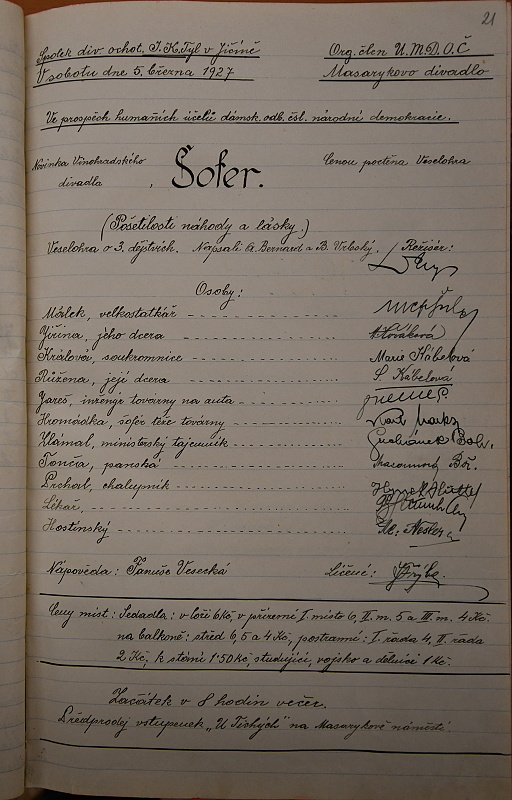 21
Spolek div. ochot. J. K. Tyl v Jičíně
Org. člen Ú. M. D. O. Č
V sobotu dne 5. března 1927
Masarykovo divadlo
Ve prospěch humaních účelů dámsk. odb. čsl. národní demokracie.
Novinka Vinohradského divadla,
Šofer.
Cenou poctěna Veselohra
(Pošetilosti náhody a lásky.)
Veselohra o 3. dějstvích. Napsali: A. Bernard a B. Vrbský. Režisér:
Osoby:
velkostatkář
Jiřina, jeho dcera - Nováková
Králová, soukromnice - Marie Kábelová
Růžena, její dcera - S. Kábelová
Jareš, inženýr továrny na auta
Hromádka, šofér téže továrny
ministerský tajemník
Tonča, panská
Prchal, chalupník
Lékař,
Hostinský
Nápověda: Vesecká Líčení:
Ceny míst: Sedadla: v loži 6 Kč, v přízemí I. místo 6, II. m. 5 a III. m. 4 Kč.
na balkoně: střed 6, 5 a 4 Kč, postranní: I. řada 4, II. řada
2 Kč, k stání 1·50 Kč, studující, vojsko a dělníci 1 Kč.
Začátek v 8 hodin večer.
Předprodej vstupenek „U Tichých" na Masarykově náměstí.